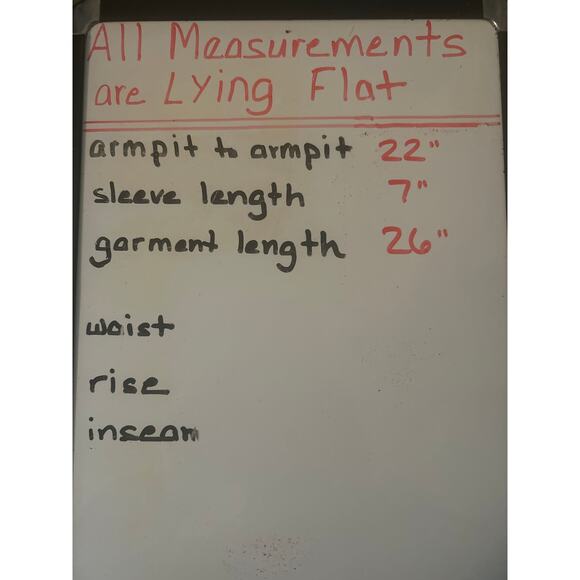 All Measurements
are Lying Flat
armpit to armpit 22"
sleeve length 7"
garment length 26"
waist
rise
inseam